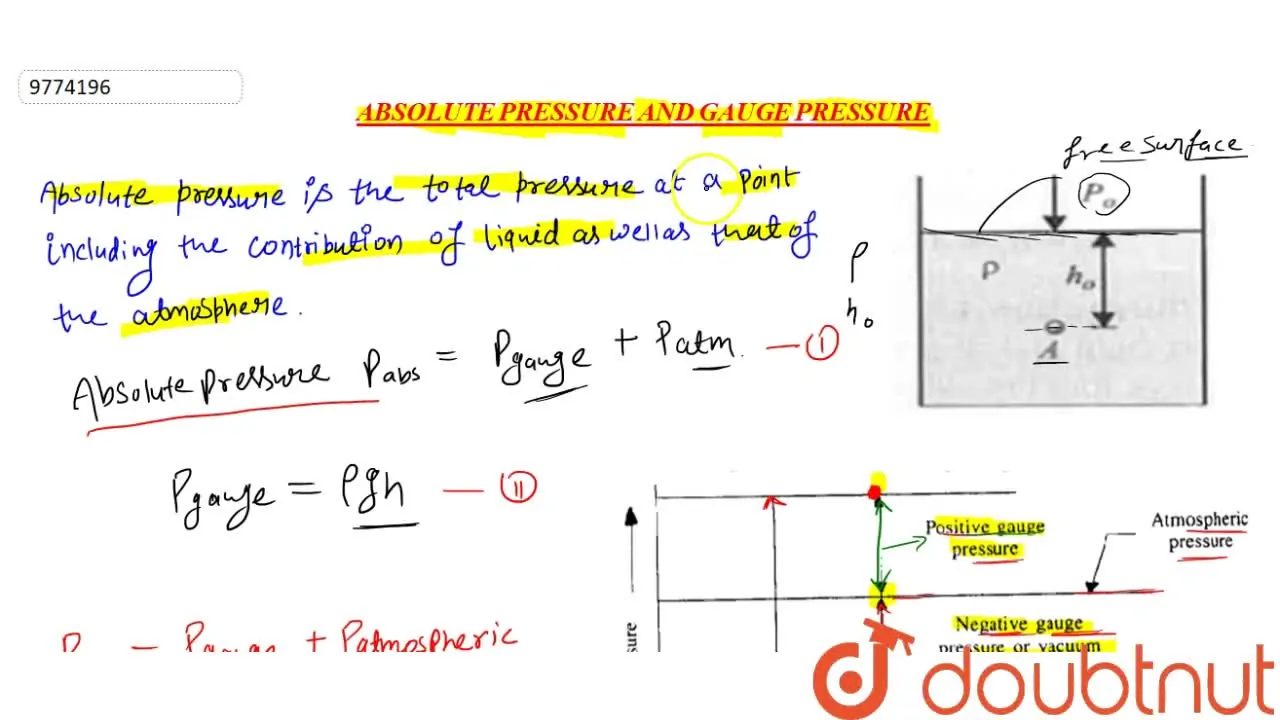 9774196
ABSOLUTE PRESSURE AND GAUGE PRESSURE
free surface
Absolute pressure is the total pressure at a point
including the contribution of liquid as well as that of
the atmosphere.
P₀
ρ
h₀
A
ρ
h₀
Absolute pressure Pabs = Pgauge + Patm. — Ⓘ
Pgauge = ρgh — Ⓘⓘ
Positive gauge
pressure
Atmospheric
pressure
Negative gauge
pressure or vacuum
= Pgauge + Patmospheric
doubtnut